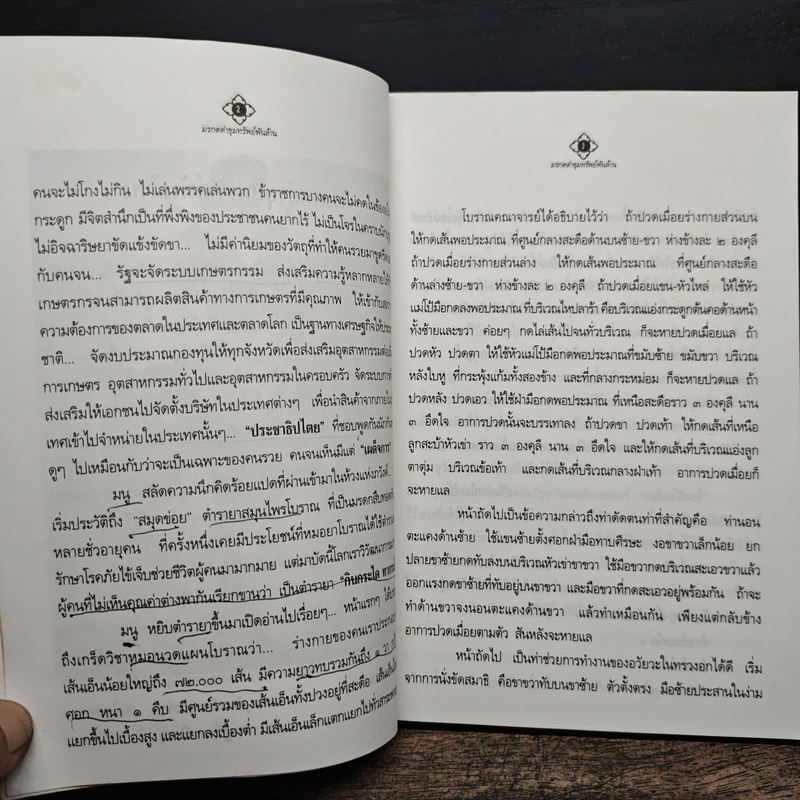 2
มรกตดำขุมทรัพย์พันล้าน
คนจะไม่โกงไม่กิน ไม่เล่นพรรคเล่นพวก ข้าราชการบางคนจะไม่คดในข้องอใน
กระดูก มีจิตสำนึกเป็นที่พึ่งพิงของประชาชนคนยากไร้ ไม่เป็นโจรในคราบ
ไม่อิจฉาริษยาขัดแข้งขัดขา... ไม่มีค่านิยมของวัตถุที่ทำให้คนรวยมาขูดรีด
กับคนจน... รัฐจะจัดระบบเกษตรกรรม ส่งเสริมความรู้หลากหลายให้
เกษตรกรจนสามารถผลิตสินค้าทางการเกษตรที่มีคุณภาพ ให้เข้ากับ
ความต้องการของตลาดในประเทศและตลาดโลก เป็นฐานทางเศรษฐกิจให้
ชาติ... จัดงบประมาณกองทุนให้ทุกจังหวัดเพื่อส่งเสริมอุตสาหกรรม
การเกษตร อุตสาหกรรมทั่วไปและอุตสาหกรรมในครอบครัว จัดระบบการ
ส่งเสริมให้เอกชนไปจัดตั้งบริษัทในประเทศต่างๆ เพื่อนำสินค้าจากภายใน
เทศเข้าไปจำหน่ายในประเทศนั้นๆ... "ประชาธิปไตย" ที่ชอบพูดกันนัก
ดูๆ ไปเหมือนกับว่าจะเป็นเฉพาะของคนรวย คนจนเห็นมีแต่ "เผด็จการ"
มนู สลัดความนึกคิดร้อยแปดที่ผ่านเข้ามาในห้วงแห่งภวังค์...
เริ่มประวัติถึง "สมุดข่อย" ตำรายาสมุนไพรโบราณ ที่เป็นมรดกสืบทอด
หลายชั่วอายุคน ที่ครั้งหนึ่งเคยมีประโยชน์ที่หมอยาโบราณได้ใช้
รักษาโรคภัยไข้เจ็บช่วยชีวิตผู้คนมามากมาย แต่มาบัดนี้โลกเราวิวัฒนาการ
ผู้คนที่ไม่เห็นคุณค่าต่างพากันเรียกขานว่า เป็นตำรายา "กินกระได
มนู หยิบตำรายาขึ้นมาเปิดอ่านไปเรื่อยๆ... หน้าแรกๆ ได้
ถึงเกร็ดวิชาหมอนวดแผนโบราณว่า... ร่างกายของคนเราประกอบ
เส้นเอ็นน้อยใหญ่ถึง ๗๒,๐๐๐ เส้น มีความยาวทบรวมกันถึง ๑ วา
ศอก หนา ๑ คืบ มีศูนย์รวมของเส้นเอ็นทั้งปวงอยู่ที่สะดือ เส้นเอ็น
แยกขึ้นไปเบื้องสูง และแยกลงเบื้องต่ำ มีเส้นเอ็นเล็กแตกแยกไปทั่วสาระ
3
มรกตดำขุมทรัพย์พันล้าน
โบราณคณาจารย์ได้อธิบายไว้ว่า ถ้าปวดเมื่อยร่างกายส่วนบน
ให้กดเส้นพอประมาณ ที่ศูนย์กลางสะดือด้านบนซ้าย-ขวา ห่างข้างละ ๒ องคุลี
ถ้าปวดเมื่อยร่างกายส่วนล่าง ให้กดเส้นพอประมาณ ที่ศูนย์กลางสะดือ
ด้านล่างซ้าย-ขวา ห่างข้างละ ๒ องคุลี ถ้าปวดเมื่อยแขน-หัวไหล่ ให้ใช้หัว
แม่โป้มือกดลงพอประมาณ ที่บริเวณไหปลาร้า คือบริเวณแอ่งกระดูกต้นคอด้านหน้า
ทั้งซ้ายและขวา ค่อยๆ กดไล่เส้นไปจนทั่วบริเวณ ก็จะหายปวดเมื่อยแล ถ้า
ปวดหัว ปวดตา ให้ใช้หัวแม่โป้มือกดพอประมาณที่ขมับซ้าย ขมับขวา บริเวณ
หลังใบหู ที่กระพุ้งแก้มทั้งสองข้าง และที่กลางกระหม่อม ก็จะหายปวดแล ถ้า
ปวดหลัง ปวดเอว ให้ใช้ฝ่ามือกดพอประมาณ ที่เหนือสะดือราว ๓ องคุลี นาน
๓ อึดใจ อาการปวดนั้นจะบรรเทาลง ถ้าปวดขา ปวดเท้า ให้กดเส้นที่เหนือ
ลูกสะบ้าหัวเข่า ราว ๓ องคุลี นาน ๓ อึดใจ และให้กดเส้นที่บริเวณแอ่งลูก
ตาตุ่ม บริเวณข้อเท้า และกดเส้นที่บริเวณกลางฝ่าเท้า อาการปวดเมื่อยก็
จะหายแล
หน้าถัดไปเป็นข้อความกล่าวถึงท่าดัดตนท่าที่สำคัญคือ ท่านอน
ตะแคงด้านซ้าย ใช้แขนซ้ายตั้งศอกฝ่ามือทาบศีรษะ งอขาขวาเล็กน้อย ยก
ปลายขาซ้ายกดทับลงบนบริเวณหัวเข่าขาขวา ใช้มือขวากดบริเวณสะเอวขวาแล้ว
ออกแรงกดขาซ้ายที่ทับอยู่บนขาขวา และมือขวาที่กดสะเอวอยู่พร้อมกัน ถ้าจะ
ทำด้านขวาจงนอนตะแคงด้านขวา แล้วทำเหมือนกัน เพียงแต่กลับข้าง
อาการปวดเมื่อยตามตัว สันหลังจะหายแล
หน้าถัดไป เป็นท่าช่วยการทำงานของอวัยวะในทรวงอกได้ดี เริ่ม
จากการนั่งขัดสมาธิ คือขาขวาทับบนขาซ้าย ตัวตั้งตรง มือซ้ายประสานในง่าม